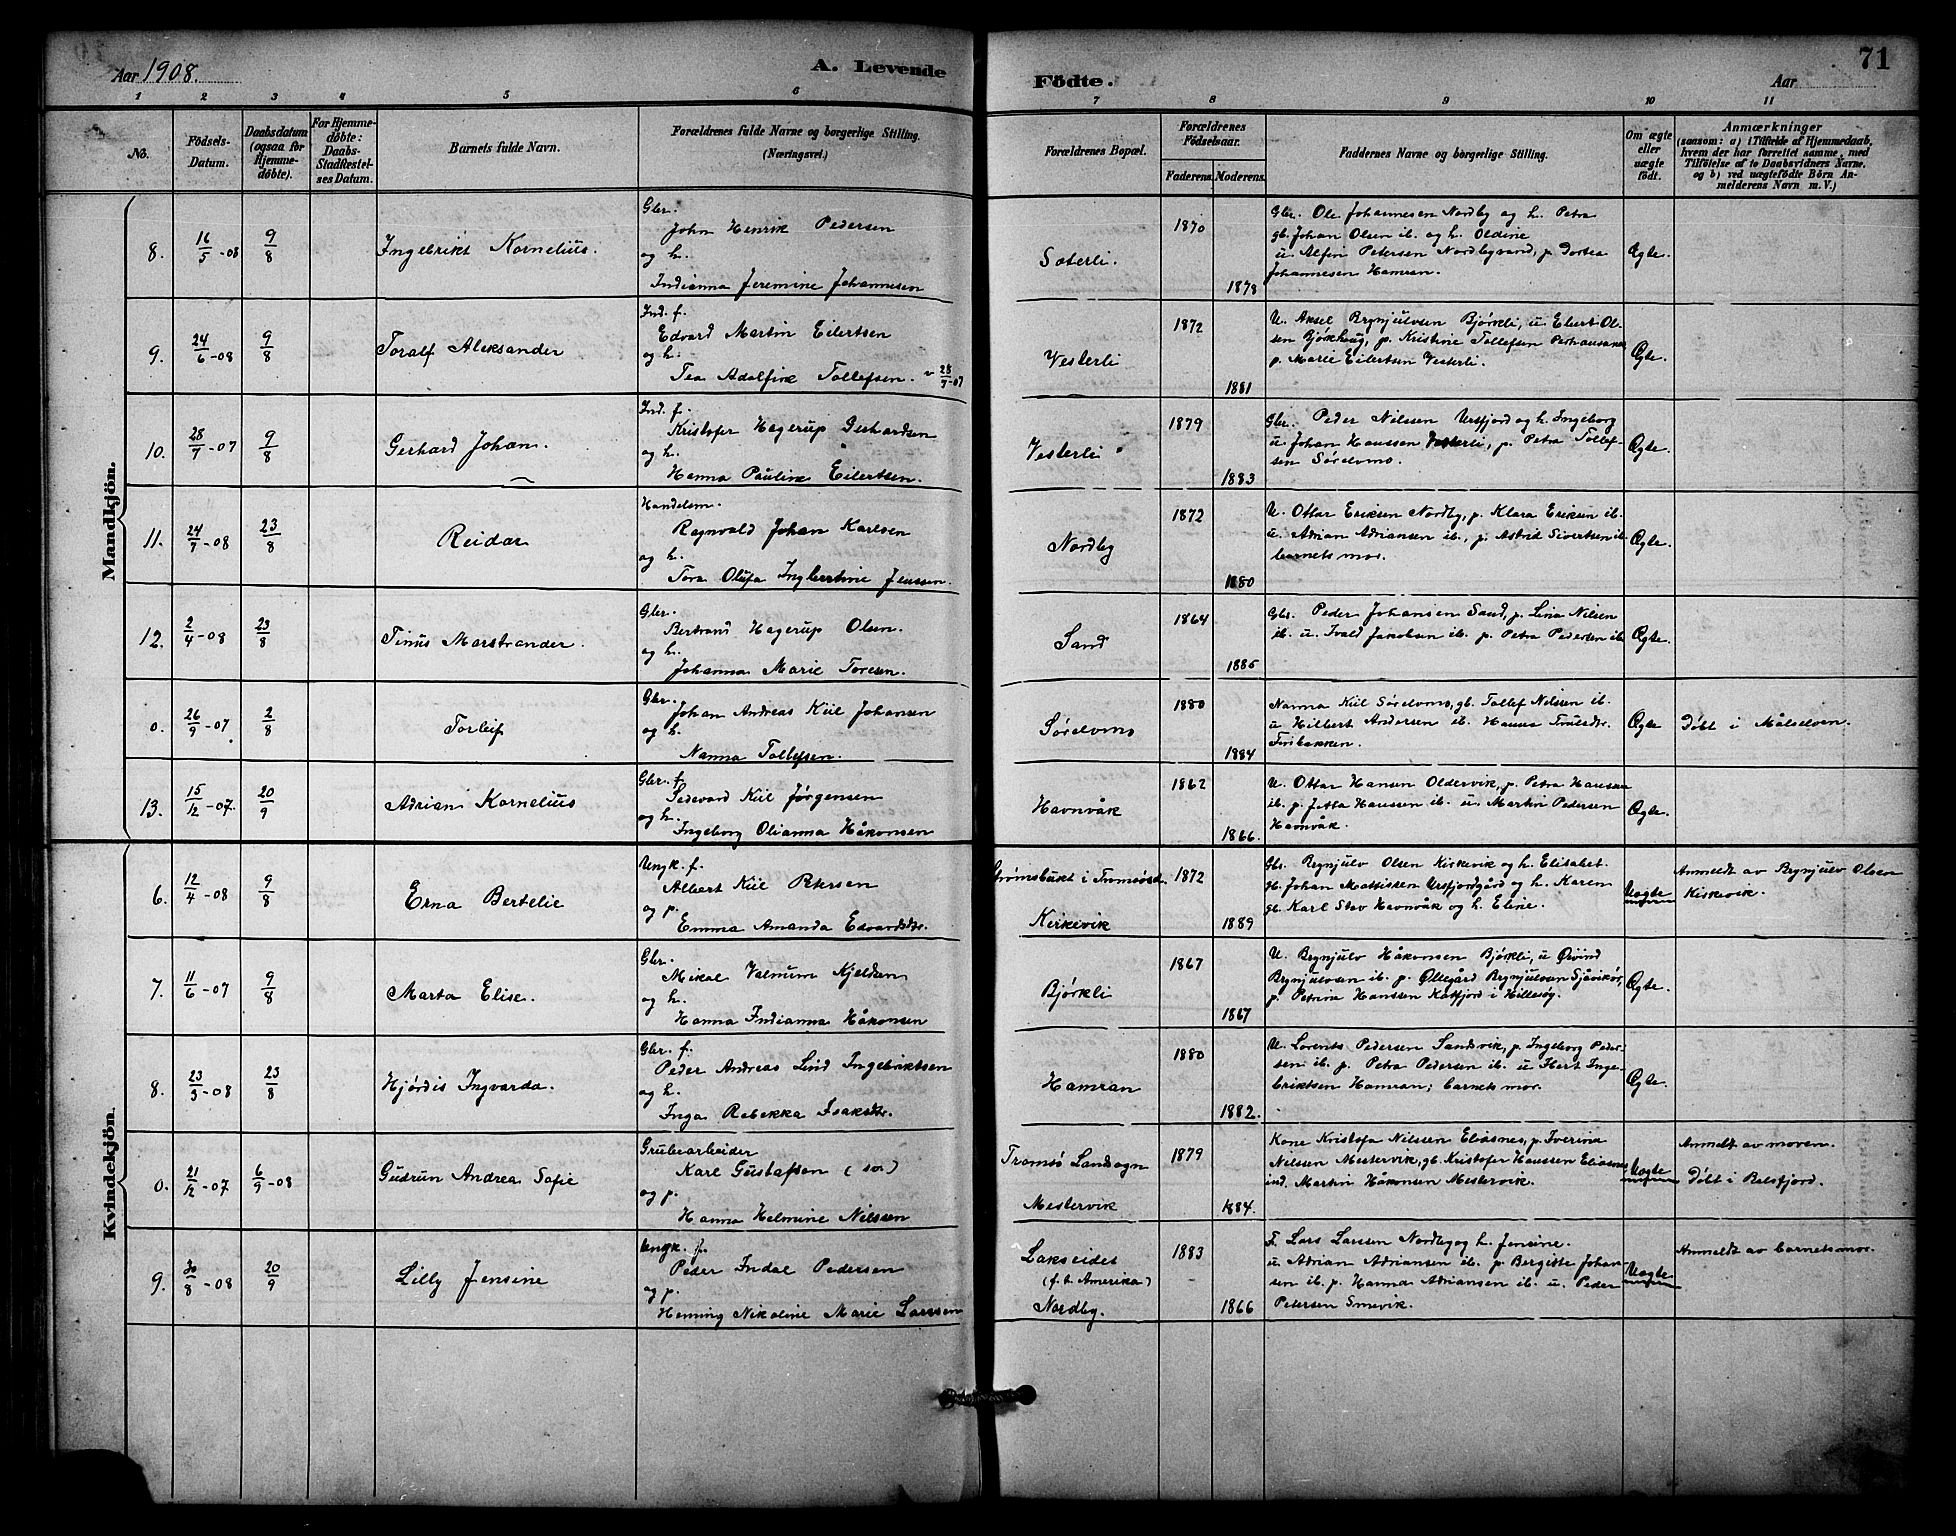 Aar 1908.
A. Levende
Födte.
Aar
71
1 2 3 4 5 6 7 8 9 10 11
No.
Födsels-
Datum.
Daabsdatum
(ogsaa for
Hjemme-
döbte).
For Hjemme-
döbte:
Daabs-
Stadfæstel-
ses Datum.
Barnets fulde Navn.
Forældrenes fulde Navne og borgerlige Stilling.
(Næringsvei.)
Forældrenes Bopæl.
Forældrenes
Födselsaar.
Faderens. Moderens.
Faddernes Navne og borgerlige Stilling.
Om ægte
eller
uægte
födt.
Anmærkninger
(saasom: a) i Tilfælde af Hjemmedaab,
hvem der har forrettet samme, med
Tilföielse af to Daabsvidners Navne,
og b) ved uægtefödte Börn An-
melderens Navn m. V.)
Mandkjön.
8. 16/5-08 9/8 Ingebrikt Kornelius.
Gbr.
John Henrik Pedersen
og h.
Indianna Jeremine Johannesen
Sæterli.
1870
1878
Gbr. Ole Johannesen Nordby og h. Petra
gb. Johan Olsen ib. og h. Oldine
u. Alfin Petersen Nordbyvand, p. Dortea
Johannesen Hamran.
Ægte.
9. 24/6-08 9/8 Toralf Aleksander
Ind. f.
Edvard Martin Eilertsen
og h.
Tea Adolfine Tollefsen. v 28/7-07
Vesterli
1872
1881
U. Aksel Brynjulvsen Bjørkli, u Ebert Ol-
sen Bjørkhaug, p. Kristine Tollefsen
p. Marie Eilertsen Vesterli.
Ægte.
10. 28/7-07 9/8 Gerhard Johan.
Ind. f.
Kristofer Hagerup Gerhardsen
og h.
Hanna Pauline Eilertsen.
Vesterli
1879
1883
Gbr. Peder Nilsen Ursfjord og h. Ingeborg
u. Johan Hanssen Vesterli, p. Petra Tollef-
sen Sørelvmo.
Ægte.
11. 24/7-08 23/8 Reidar
Handelsm.
Ragnvald Johan Karlsen
og h.
Tora Olufa Ingbertine Jenssen.
Nordby
1872
1880
U. Ottar Eriksen Nordby, p. Klara Eriksen ib.
u. Adrian Adriansen ib., p. Astrid Sivertsen ib
barnets mor.
Ægte.
12. 2/4-08 23/8 Tinus Marstrander.
Gbr.
Bertrand Hagerup Olsen.
og h.
Johanna Marie Toresen.
Sand
1864
1885
Gbr. Peder Johansen Sand, p. Lina Nilsen
ib. u. Ivald Jakobsen ib. p. Petra Pedersen ib
Ægte.
0. 26/9-07 2/8 Torleif
Gbr.
Johan Andreas Kiil Johansen
og h.
Nanna Tollefsen.
Sørelvmo
1880
1884
Nanna Kiil Sørelvmo, gb. Tollef Nilsen ib.
u Hilbert Andersen ib. Hanna
Furbakken.
Ægte
Døbt i Målselven.
13. 15/12-07. 20/9 Adrian Kornelius
Gbr. f.
Sedevard Kiil Jørgensen
og h.
Ingeborg Olianna Håkonsen
Havnvåk
1862
1866.
U. Ottar Hansen Oldervik, p. Petra Hanssen
ib. p. Jetta Hanssen ib. u. Martin Pedersen
Havnvåk.
Ægte.
Kvindekjön.
6. 12/4-08 9/8 Erna Bertelie
Ungk. f.
Albert Kiil Petersen
og p.
Emma Amanda Edvardsdtr.
Strømsbukt i Tromsøsd.
Kirkevik
1872
1889
Gbr. Brynjulv Olsen Kirkevik og h. Elisabet.
gb. Johan Mattissen Ursfjordgård og h. Karen
gb. Karl Stav Havnvåk og h. Eline.
Uægte
Anmeldt av Brynjulv Olsen
Kirkevik.
7. 11/6-07 9/8 Marta Elise.
Gbr.
Mikal Valnum Kjeldsen
og h.
Hanna Indianna Håkonsen
Bjørkli
1867
1867
U. Brynjulv Håkonsen Bjørkli, u Øvind
Brynjulvsen ib. p. Øllegård Brynjulvsen
p. Petrina Hanssen Katfjord i Hillesøg.
Ægte.
8. 23/3-08 23/8 Hjørdis Ingvarda.
Gbr. f.
Peder Andreas Lind Ingebriktsen
og h.
Inga Rebekka Isaksdtr.
Hamran
1880
1882.
U. Lorents Pedersen Sandsvik, p. Ingeborg Peder-
sen ib. p. Petra Pedersen ib. u Hert Inge-
briktsen Hamran; barnets mor.
Ægte.
0. 21/12-07 6/9-08 Gudrun Andrea Sofie
Grubearbeider
Karl Gustafson (sv.)
og p.
Hanna Helmine Nilssen
Tromsø Landsogn
Mestervik
1879
1884.
Kone Kristofa Nilssen Eliasnes, p. Iverina
Nilssen Mestervik, gb. Kristofer Hanssen Eliasnes
ind. Martin Håkonsen Mestervik.
Uægte
Anmeldt av moren.
Døbt i Balsfjord.
9. 30/8-08 20/9 Lilly Jensine
Ungk. f.
Peder Indal Pedersen
og p.
Henning Nikoline Marie Larssen
Lakseidet
(f. t. Amerika)
Nordby.
1883
1866
F. Lars Larssen Nordby og h. Jensine.
u. Adrian Adriansen ib. p. Bergitte Johan-
sen ib. p. Hanna Adriansen ib. u. Peder
Petersen Smevik.
Uægte
Anmeldt av barnets mor.